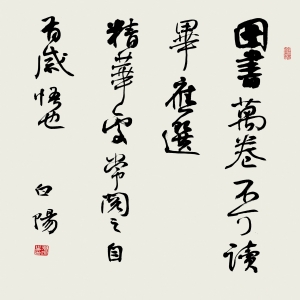 図書萬卷不可讀
畢應選
精華處常閱之自
有感悟也
白陽